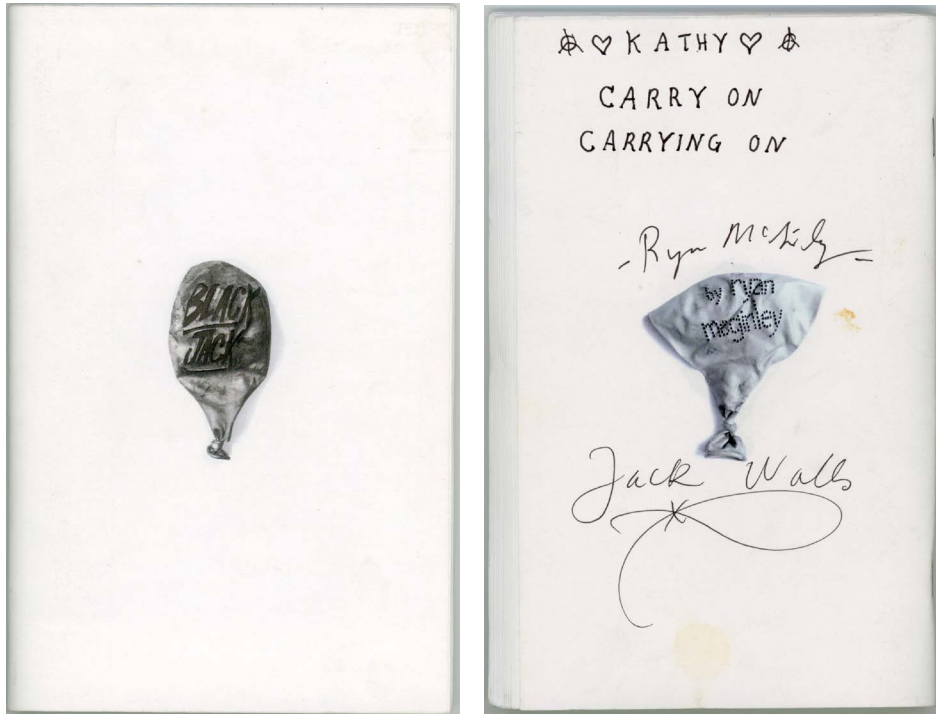 BLACK
JACK
KATHY
CARRY ON
CARRYING ON
- Ryan McGinley -
by ryan
mcginley
Jack Walls